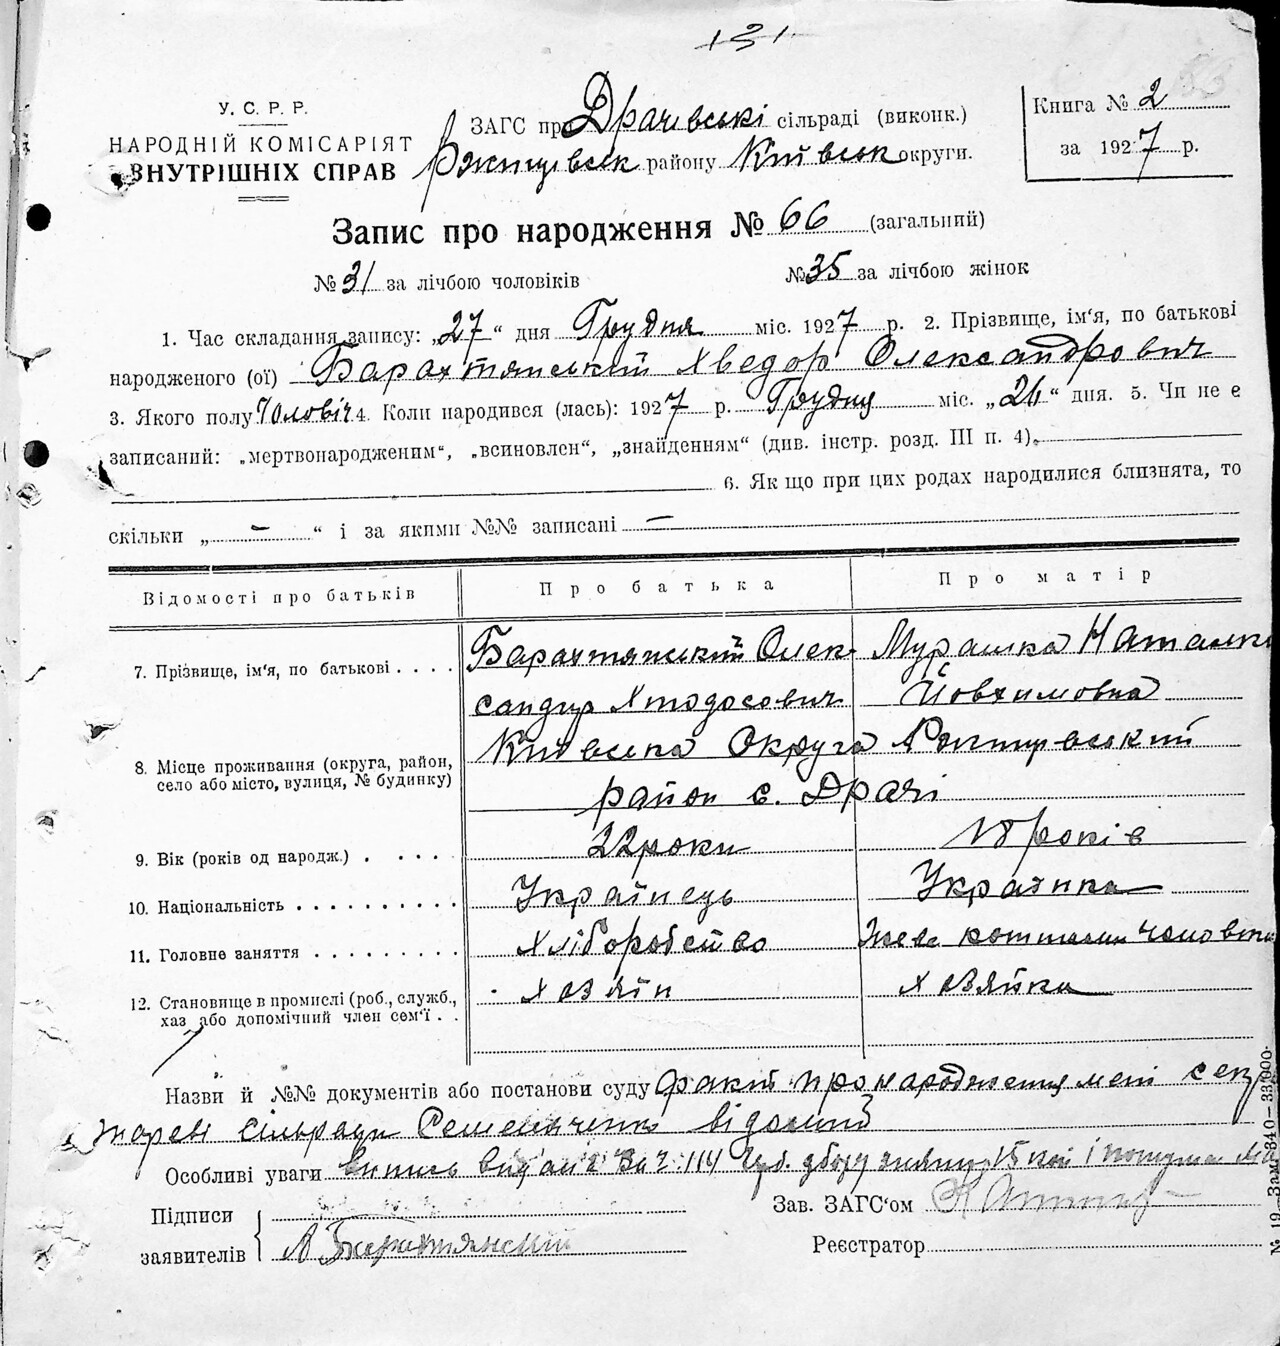 131.
У. С. Р. Р.
НАРОДНІЙ КОМІСАРІЯТ
ВНУТРІШНІХ СПРАВ
ЗАГС при Драчівські сільраді (виконк.)
Ржищівськ району Київськ округи.
Книга № 2
за 1927 р.
Запис про народження № 66 (загальний)
№ 31 за лічбою чоловіків № 35 за лічбою жінок
1. Час складання запису: „27“ дня Грудня міс. 1927 р. 2. Прізвище, ім'я, по батькові
народженого (ої) Барахтянський Хведор Олександрович
3. Якого полу Чоловіч 4. Коли народився (лась): 1927 р. Грудня міс. „26“ дня. 5. Чи не є
записаний: „мертвонародженим“, „всиновлен“, „знайденням“ (див. інстр. розд. III п. 4).
6. Як що при цих родах народилися близнята, то
скільки „ — “ і за якими №№ записані —
Відомості про батьків Про батька Про матір
7. Прізвище, ім'я, по батькові . . . . Барахтянський Олек- Мурашка Наталка
сандир Хтодосович Йовхимовна
8. Місце проживання (округа, район, Київська Округа Ржищівський
село або місто, вулиця, № будинку) район с. Драчі
9. Вік (років од народж.) . . . . . 22 роки 18 років
10. Національність . . . . . . . . . . Українець Українка
11. Головне заняття . . . . . . . . . Хліборобство коштами
12. Становище в промислі (роб., служб., Хозяїн Хозяйка
хаз. або допомічний член сем'ї . .
Назви й №№ документів або постанови суду факт про народження мені секре
тареві сільради відомий
Особливі уваги випись видана за № 114
Підписи
заявителів А Барахтянский
Зав. ЗАГС'ом
Реєстратор
№ 19—Зам. 340—33.000.